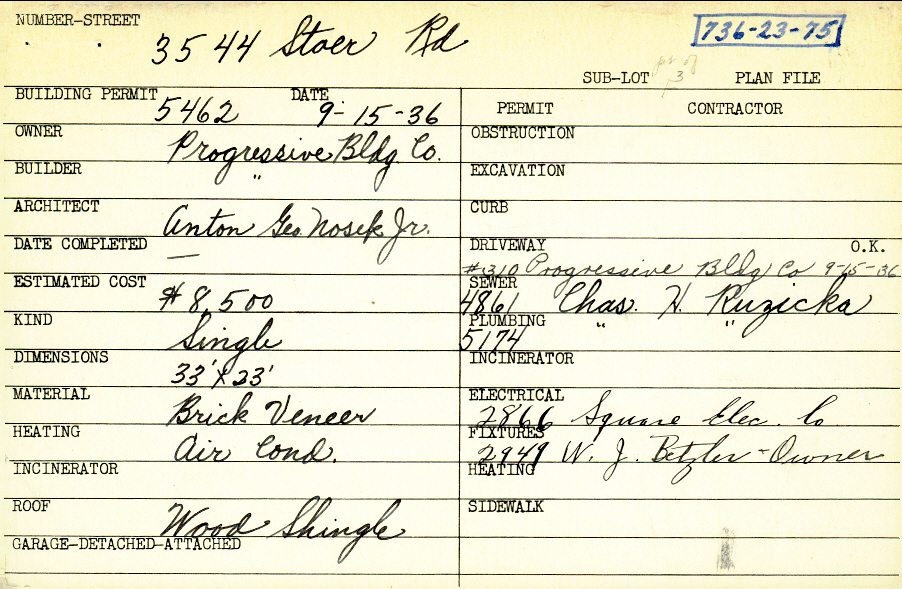 NUMBER-STREET
3544 Stoer Rd
736-23-75
SUB-LOT pt of 3 PLAN FILE
BUILDING PERMIT 5462 DATE 9-15-36
PERMIT CONTRACTOR
OWNER Progressive Bldg. Co.
OBSTRUCTION
BUILDER "
EXCAVATION
ARCHITECT Anton Geo. Nosek Jr.
CURB
DATE COMPLETED —
DRIVEWAY O.K.
#310 Progressive Bldg Co 9-15-36
ESTIMATED COST $8,500
SEWER
4861 Chas. H. Ruzicka
KIND Single
PLUMBING
5174 " "
DIMENSIONS 33'x23'
INCINERATOR
MATERIAL Brick Veneer
ELECTRICAL
2866 Square Elec. Co
HEATING Air Cond.
FIXTURES
2949 W. J. Betzler-Owner
INCINERATOR
HEATING
ROOF Wood Shingle
SIDEWALK
GARAGE-DETACHED-ATTACHED